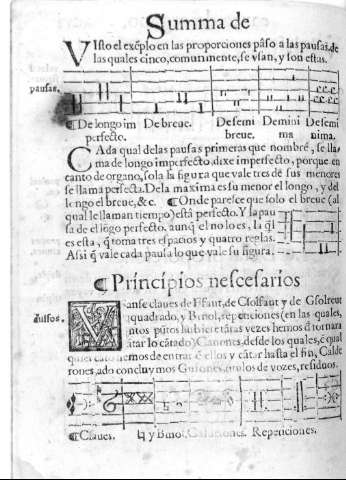 Summa de
VIsto el exẽplo en las proporciones pàso a las pausas, de
las quales cinco, comunmente, se vsan, y son estas.
pausas.
¶ De longo im De breue. De semi De mini De semi
perfecto. breue. ma nima.
CAda qual delas pausas primeras que nombré, se lla-
ma de longo imperfecto. dixe imperfecto, porque en
canto de organo, sola la figura que vale tres dẽ sus menores
se llama perfecta. De la maxima es su menor el longo, y del
longo el breue, &c. ¶ Onde paresce que solo el breue (al
qual le llaman tiempo) está perfecto. Y la pau
sa de el lõgo perfecto, aunq̃ el no lo es, la q̃l
es esta, q̃ toma tres espacios y quatro reglas.
Assi q̃ vale cada pausa lo que vale su figura.
¶ Principios nescesarios
duisos.
Vanse claues de Ffaut, de Csolfaut y de Gsolreut
♮quadrado, y Bmol, repeticiones (en las quales,
pũtos hubiere tãtas vezes hemos d̃ tornar a
cãtar lo cãtado) Canones, desde los quales, é qual
hemos de entrar é ellos y cãtar hasta el fin, Calde
rones, ado concluymos Guiones, de vozes, residuos.
¶ Claues. ♮ y Bmol, Repeticiones.